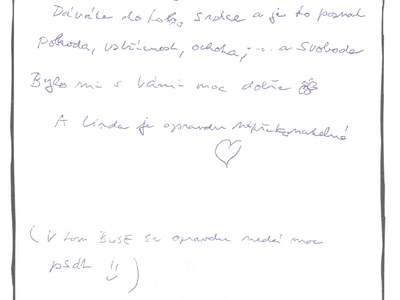 Dáváte do toho srdce a je to poznat
Pohoda, vstřícnost, ochota, ... a Svoboda
Bylo mi s Vámi moc dobře
A Linda je opravdu nepřekonatelná
(V tom BUSE se opravdu nedá moc
psát !!)